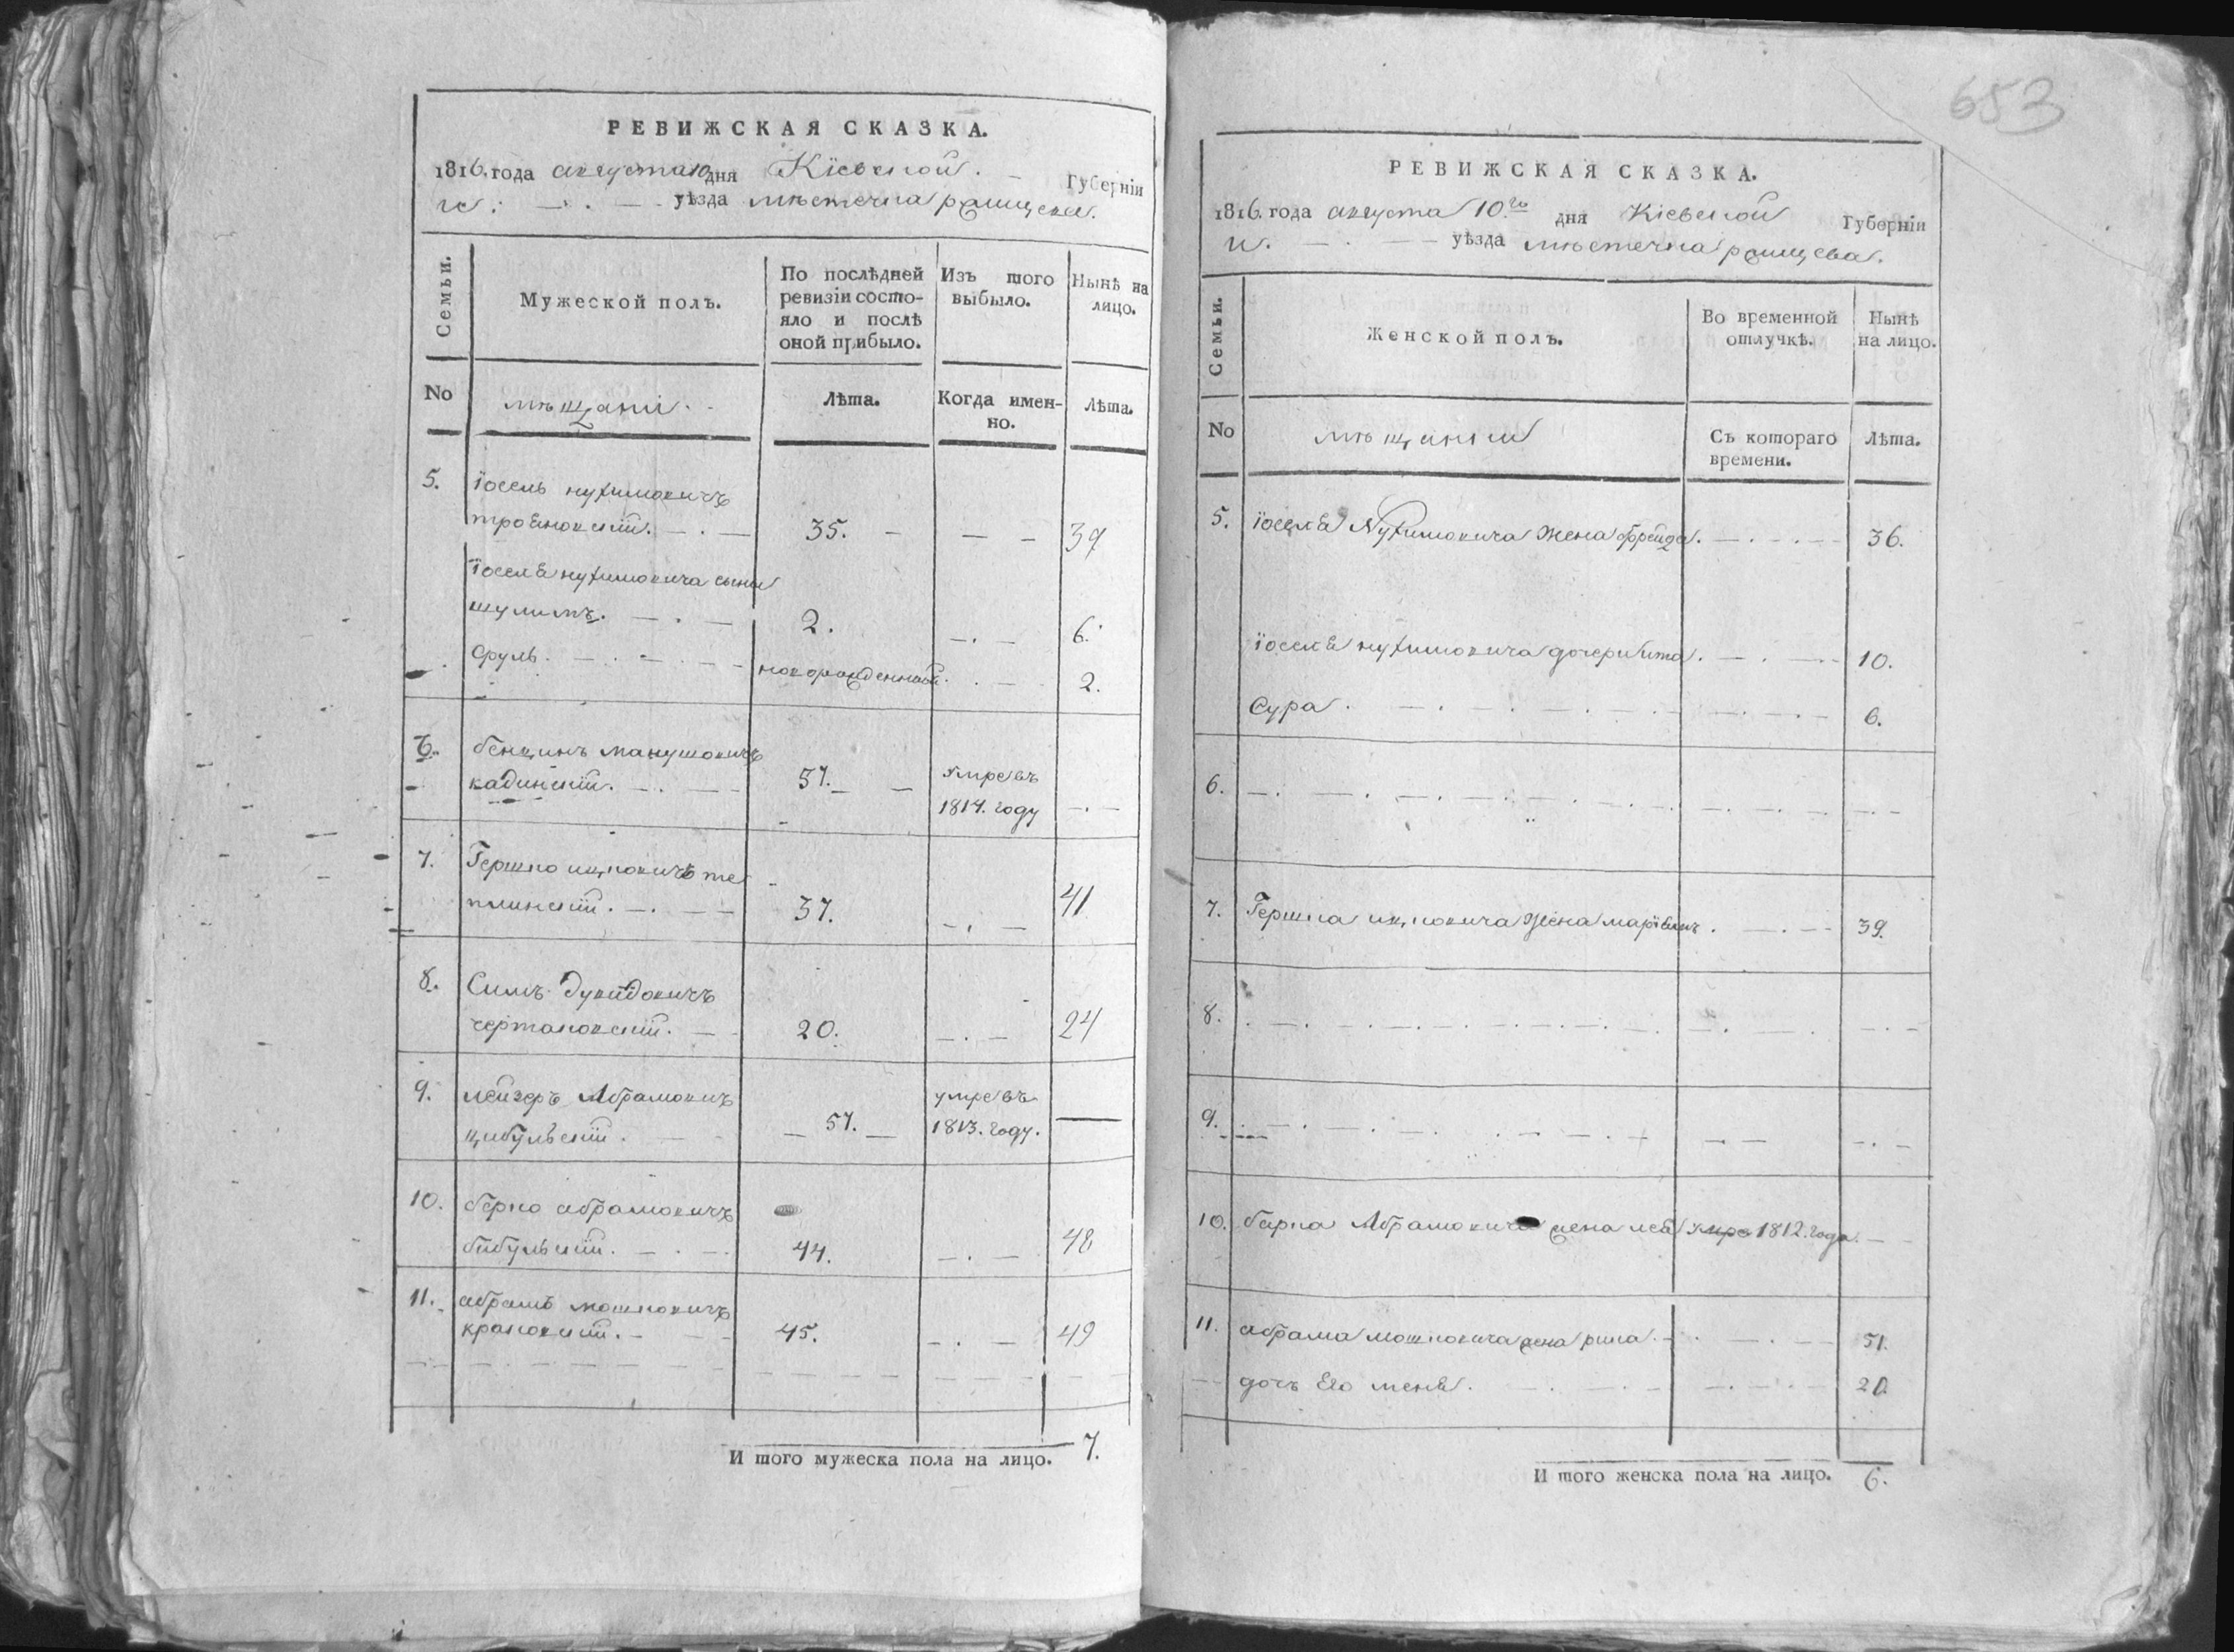 РЕВИЖСКАЯ СКАЗКА.
1816. года августа 10 дня Кіевской. Губерніи
и. уѣзда мѣстечка ращева.
Семьи.
Мужеской полъ.
По послѣдней ревизіи состояло и послѣ оной прибыло.
Изъ того выбыло.
Нынѣ на лицо.
No
мѣщани.
Лѣта.
Когда именно.
Лѣта.
5. іосель нухимовичъ
трояновскій. 35. 39
іоселя нухимовича сыны
шулимъ. 2. 6.
Сруль. новорожденный. 2.
6. бенцинъ манушовичъ
кадинскій. 57. умре въ 1814. году
7. Гершко ицковичъ те
плинскій. 37. 41
8. Симъ Дувидовичъ
чертановскій. 20. 24
9. лейзеръ Абрамовичъ
цибульскій. 57. умре въ 1813. году.
10. берко абрамовичъ
бибульскій. 44. 48
11. абрамъ мошковичъ
краковскій. 45. 49
И того мужеска пола на лицо. 7.
653
РЕВИЖСКАЯ СКАЗКА.
1816. года августа 10.го дня Кіевской Губерніи
и. уѣзда мѣстечка ращева.
Семьи.
Женской полъ.
Во временной отлучкѣ.
Нынѣ на лицо.
No
мѣщанки
Съ котораго времени.
Лѣта.
5. іоселя Нухимовича жена фрейда. 36.
іоселя нухимовича дочери ита. 10.
Сура. 6.
6.
7. Гершка ицковича жена маріемъ. 39.
8.
9.
10. берка Абрамовича жена лея умре 1812. года.
11. абрама мошковича жена рика. 51.
дочъ Его меня. 20
И того женска пола на лицо. 6.